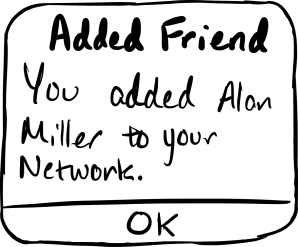 Added Friend
You added Alan
Miller to your
Network.
OK